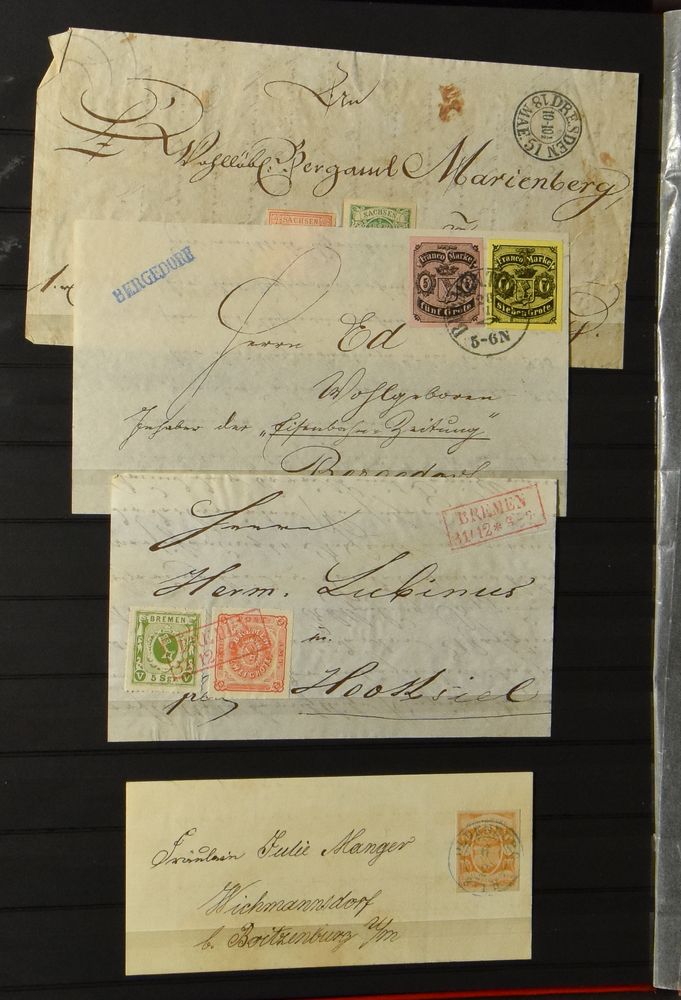 An
Wohllöbl. Bergamt Marienberg
DRESDEN 15 MAE. 18
10-10½
SACHSEN
SACHSEN
BERGEDORF
Franco Marke
5
Fünf Grote
Franco Marke
7 7
Sieben Grote
5-6N
Herrn Ed
Wohlgeboren
Inhaber der „Eisenbahn-Zeitung"
Bergedorf
Herrn
BREMEN
31/12*
Herm. Lubinus
in
BREMEN
5 SGR
BREMEN
Hooksiel
Fräulein Julie Manger
Wichmannsdorf
b. Boitzenburg U/m